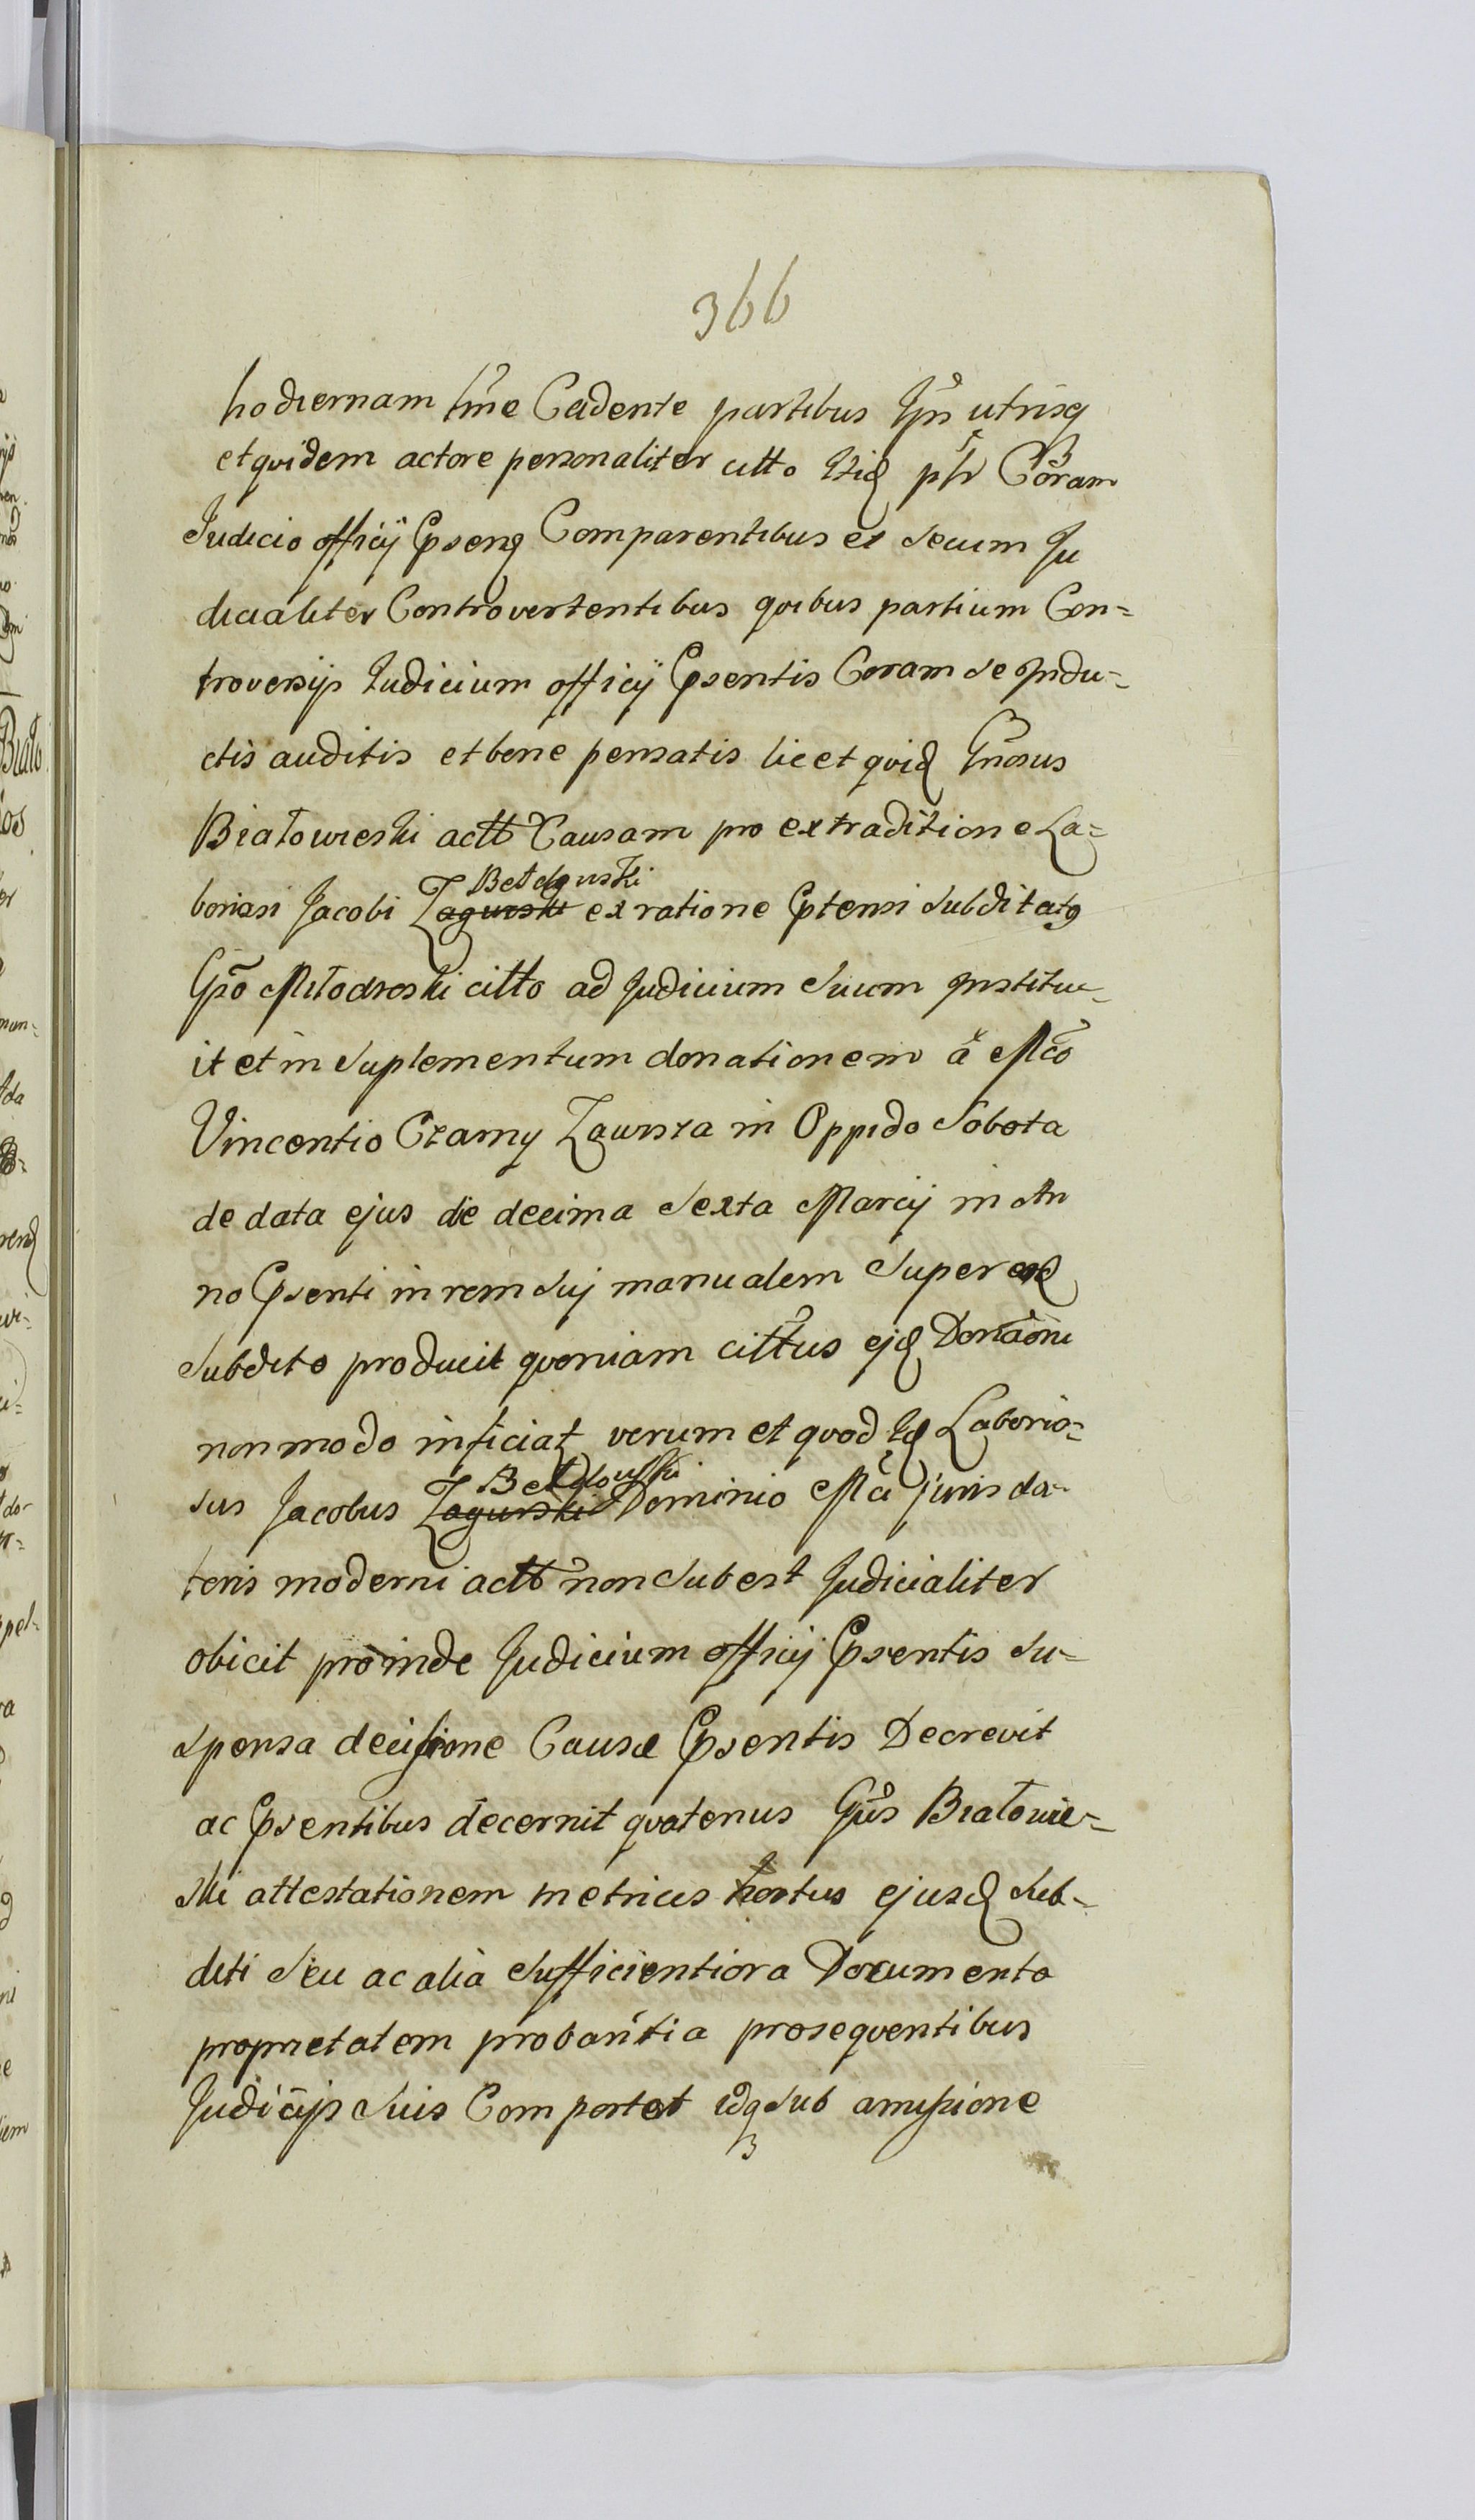 366
hodiernam tme Cadente partibus Ipis utrisq
et quidem actore personaliter citto Itid pltr Coram
Iudicio officij Pseng Comparentibus et Secum Ju
dicialiter Controvertentibus quibus partium Con=
troversijs Iudicium officij Psentis Coram se indu=
ctis auditis et bene pensatis licet quid Gnosus
Białowieski actt Causam pro extraditione La=
boriosi Jacobi Zagurski Bełdowski ex ratione Ptensi Subditatg
Gso Młodzeski citto ad Judicium Suum instituu=
it et in Suplementum donationem a Mco
Vincentio Czarny Zawisza in Oppido Sobota
de data ejus die decima Sexta Marcij in An
no Psenti in rem Suj manualem Super eod
Subdito producit quoniam cittus ejd Donaoni
non modo inficiat verum et quod Id Laborio=
sus Jacobus Zagurski Bełdowski Dominio Mci Juris da=
toris moderni actt non Subest Judicialiter
obicit proinde Judicium officij Psentis Su=
spensa decisione Causæ Psentis Decrevit
ac Psentibus decernit quatenus Gsus Białowie=
ski attestationem metrices hortus ejusd Sub=
diti Seu ac alia Sufficientiora Documenta
proprietatem probantia prosequentibus
Judicijs Suis Comportet idq Sub amissione